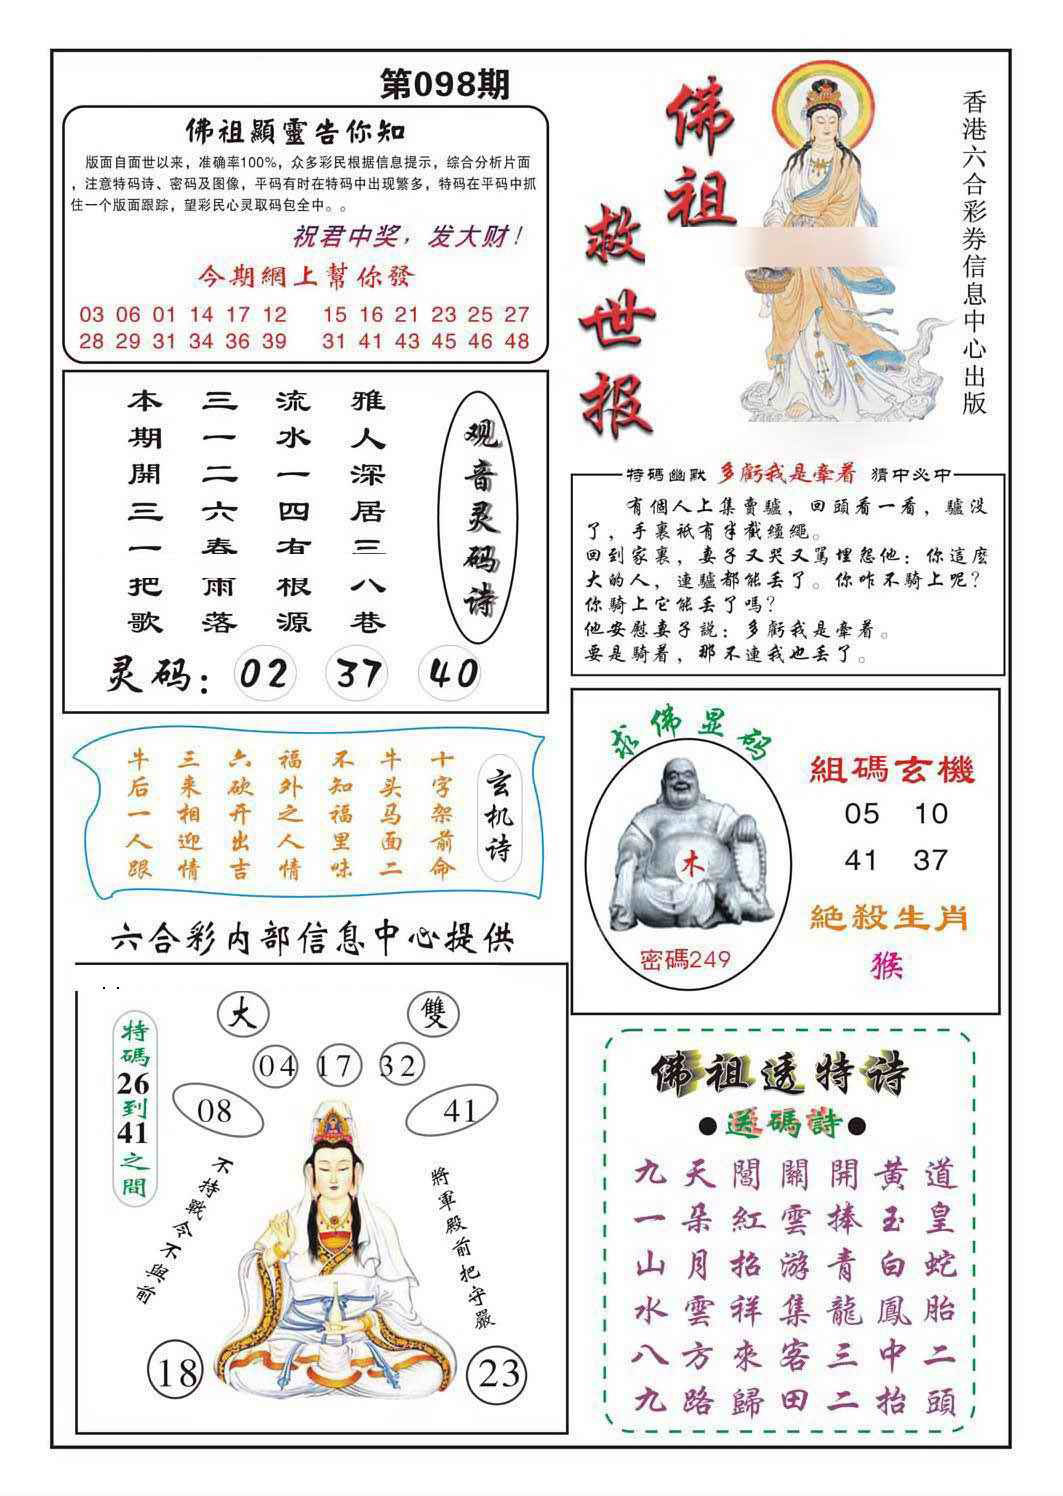 第098期
佛祖顯靈告你知
版面自面世以来，准确率100%，众多彩民根据信息提示，综合分析片面
，注意特码诗、密码及图像，平码有时在特码中出现繁多，特码在平码中抓
住一个版面跟踪，望彩民心灵取码包全中。。
祝君中奖，发大财！
今期網上幫你發
03 06 01 14 17 12 15 16 21 23 25 27
28 29 31 34 36 39 31 41 43 45 46 48
佛祖
救世报
香港六合彩券信息中心出版
观音灵码诗
雅人深居三八巷
流水一四有根源
三一二六春雨落
本期開三一把歌
灵码：02 37 40
特碼幽默 多虧我是牽着 猜中必中
有個人上集賣驢，回頭看一看，驢没
了，手裏祇有半截繮繩。
回到家裏，妻子又哭又駡埋怨他：你這麽
大的人，連驢都能丢了。你咋不騎上呢？
你騎上它能丢了嗎？
他安慰妻子説：多虧我是牽着。
要是騎着，那不連我也丢了。
玄机诗
十字架前命
牛头马面二
不知福里味
福外之人情
六砍开出吉
三来相迎情
牛后一人跟
求佛显码
木
密碼249
組碼玄機
05 10
41 37
絕殺生肖
猴
六合彩内部信息中心提供
特碼26到41之間
大
雙
04 17 32
08
41
不持戰令不與前
將軍殿前把守嚴
18
23
佛祖透特诗
●送碼詩●
九天閶關開黃道
一朵紅雲捧玉皇
山月招游青白蛇
水雲祥集龍鳳胎
八方來客三中二
九路歸田二抬頭